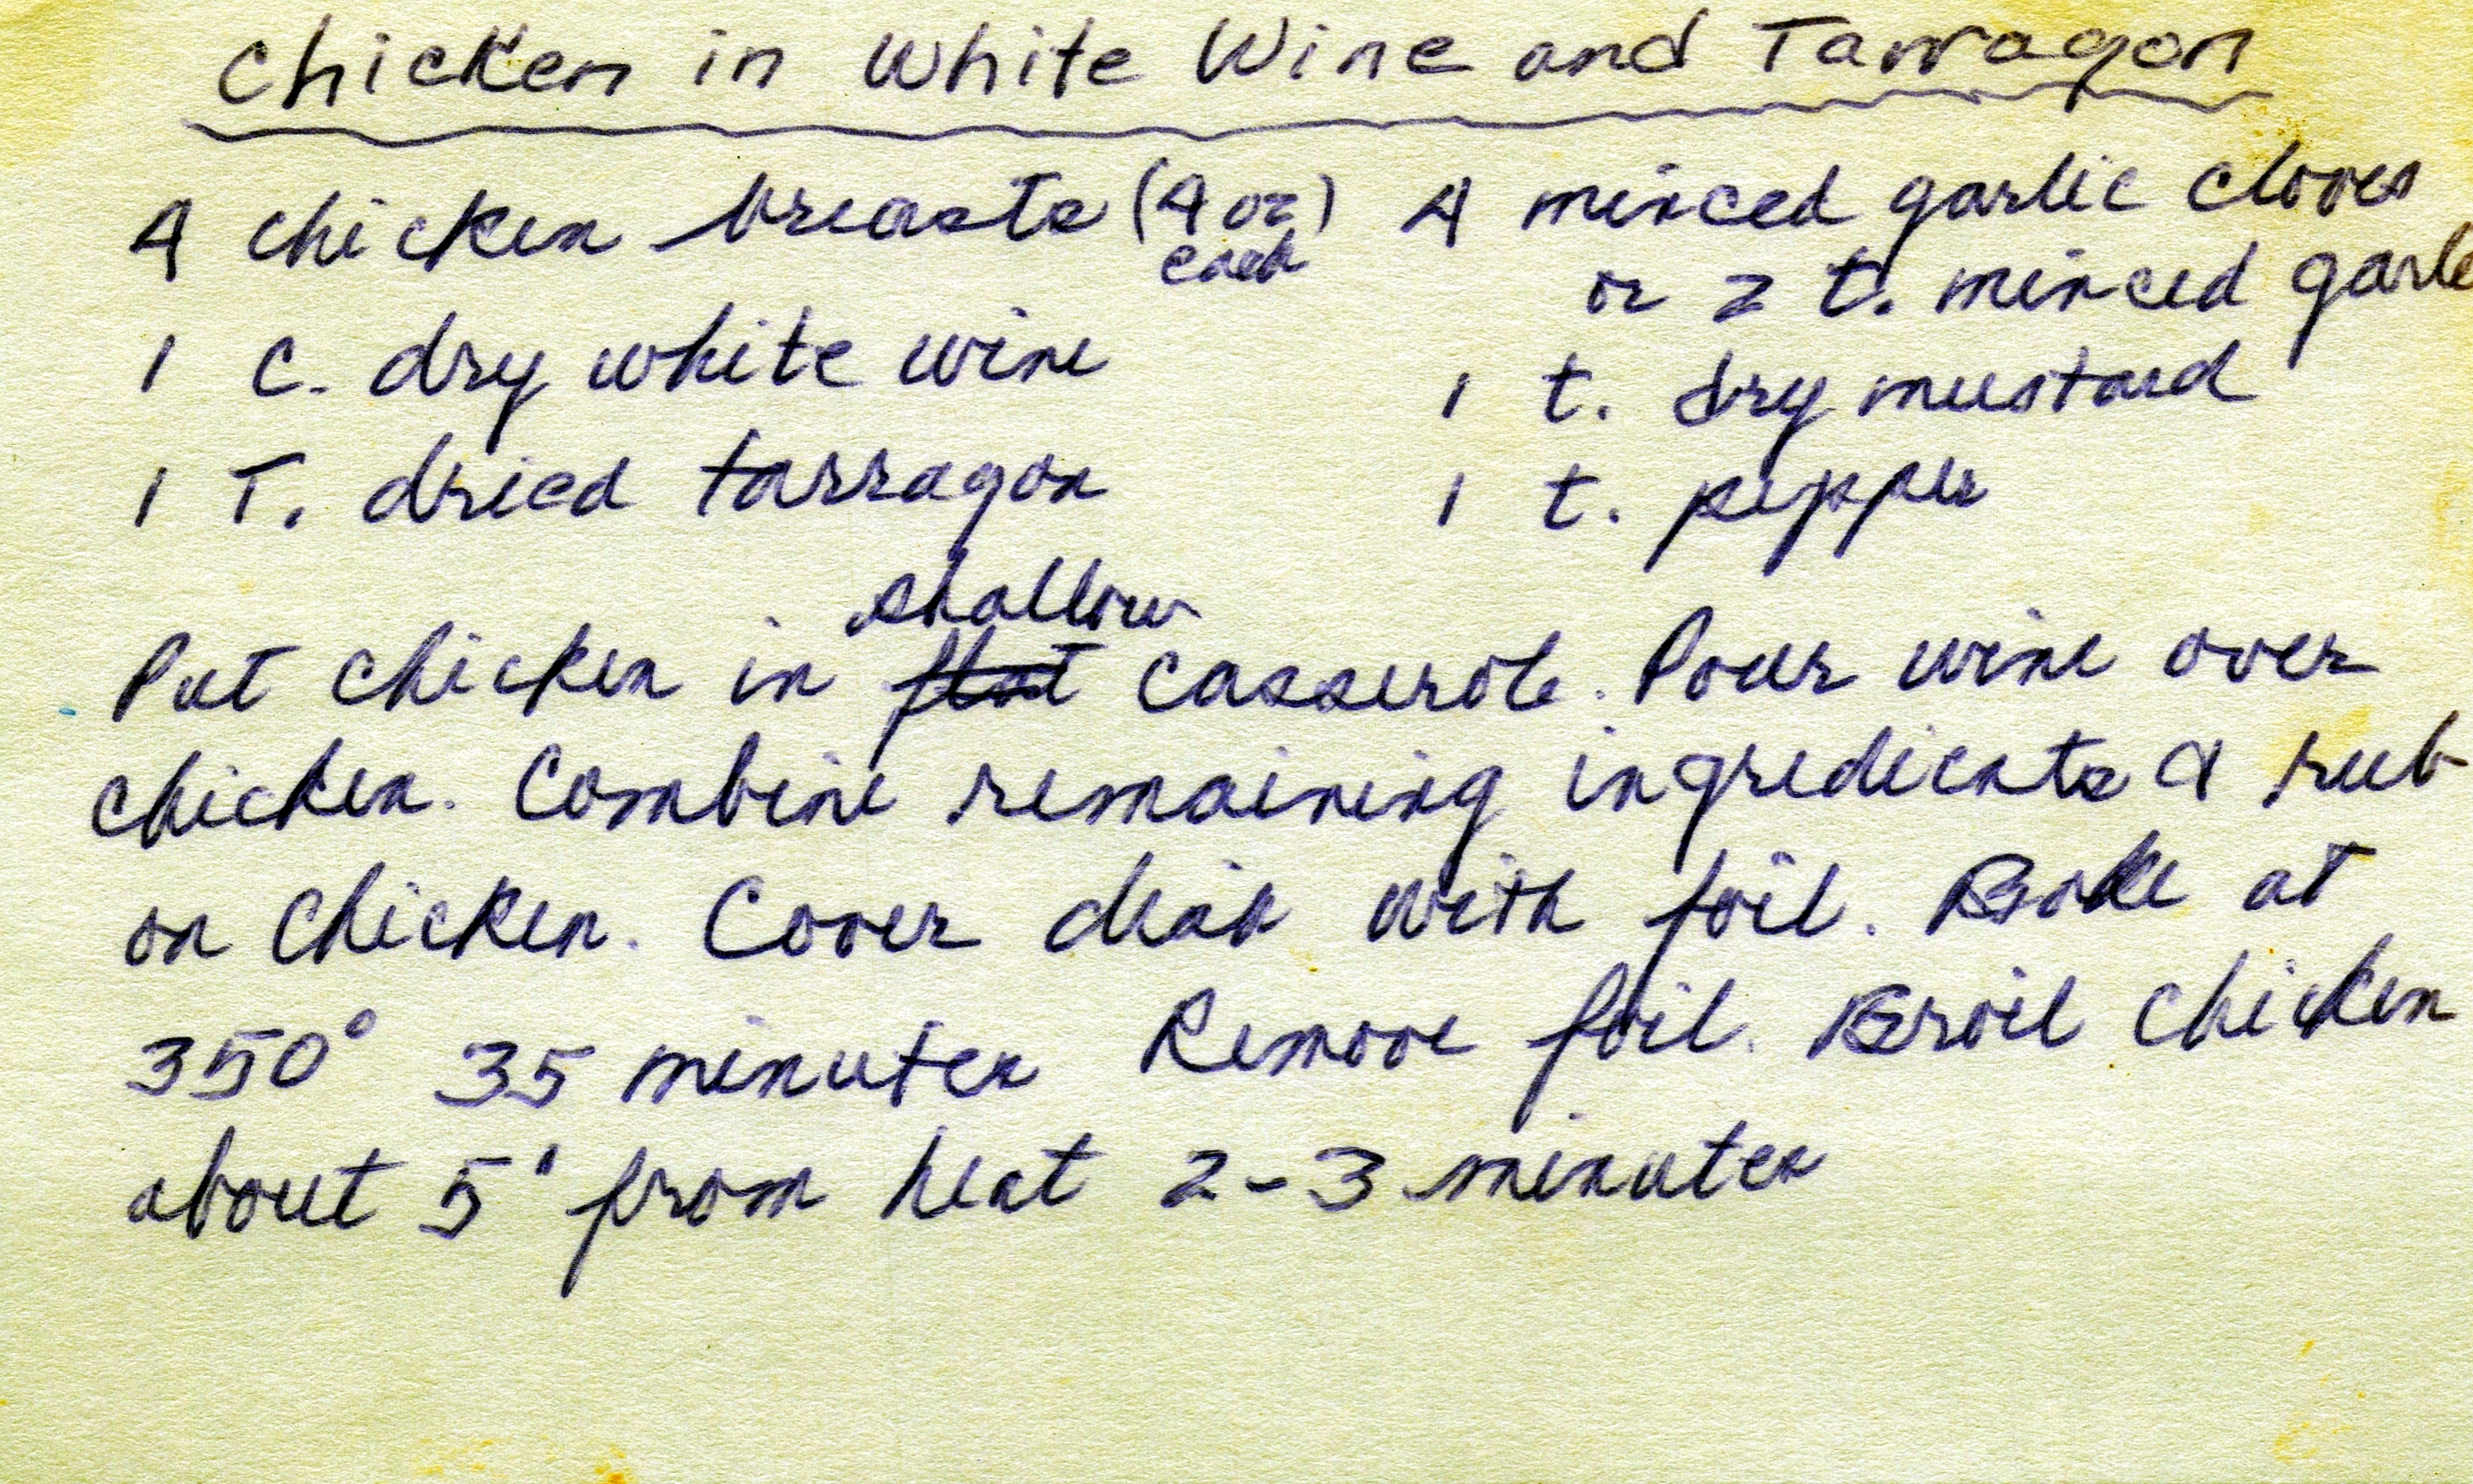 Chicken in White Wine and Tarragon
4 chicken breasts (4 oz) 4 minced garlic cloves
each
or 2 t. minced garlic
1 c. dry white wine
1 t. dry mustard
1 T. dried tarragon
1 t. pepper
shallow
Put chicken in flat casserole. Pour wine over
chicken. Combine remaining ingredients & rub
on chicken. Cover dish with foil. Bake at
350° 35 minutes Remove foil. Broil chicken
about 5" from heat 2-3 minutes